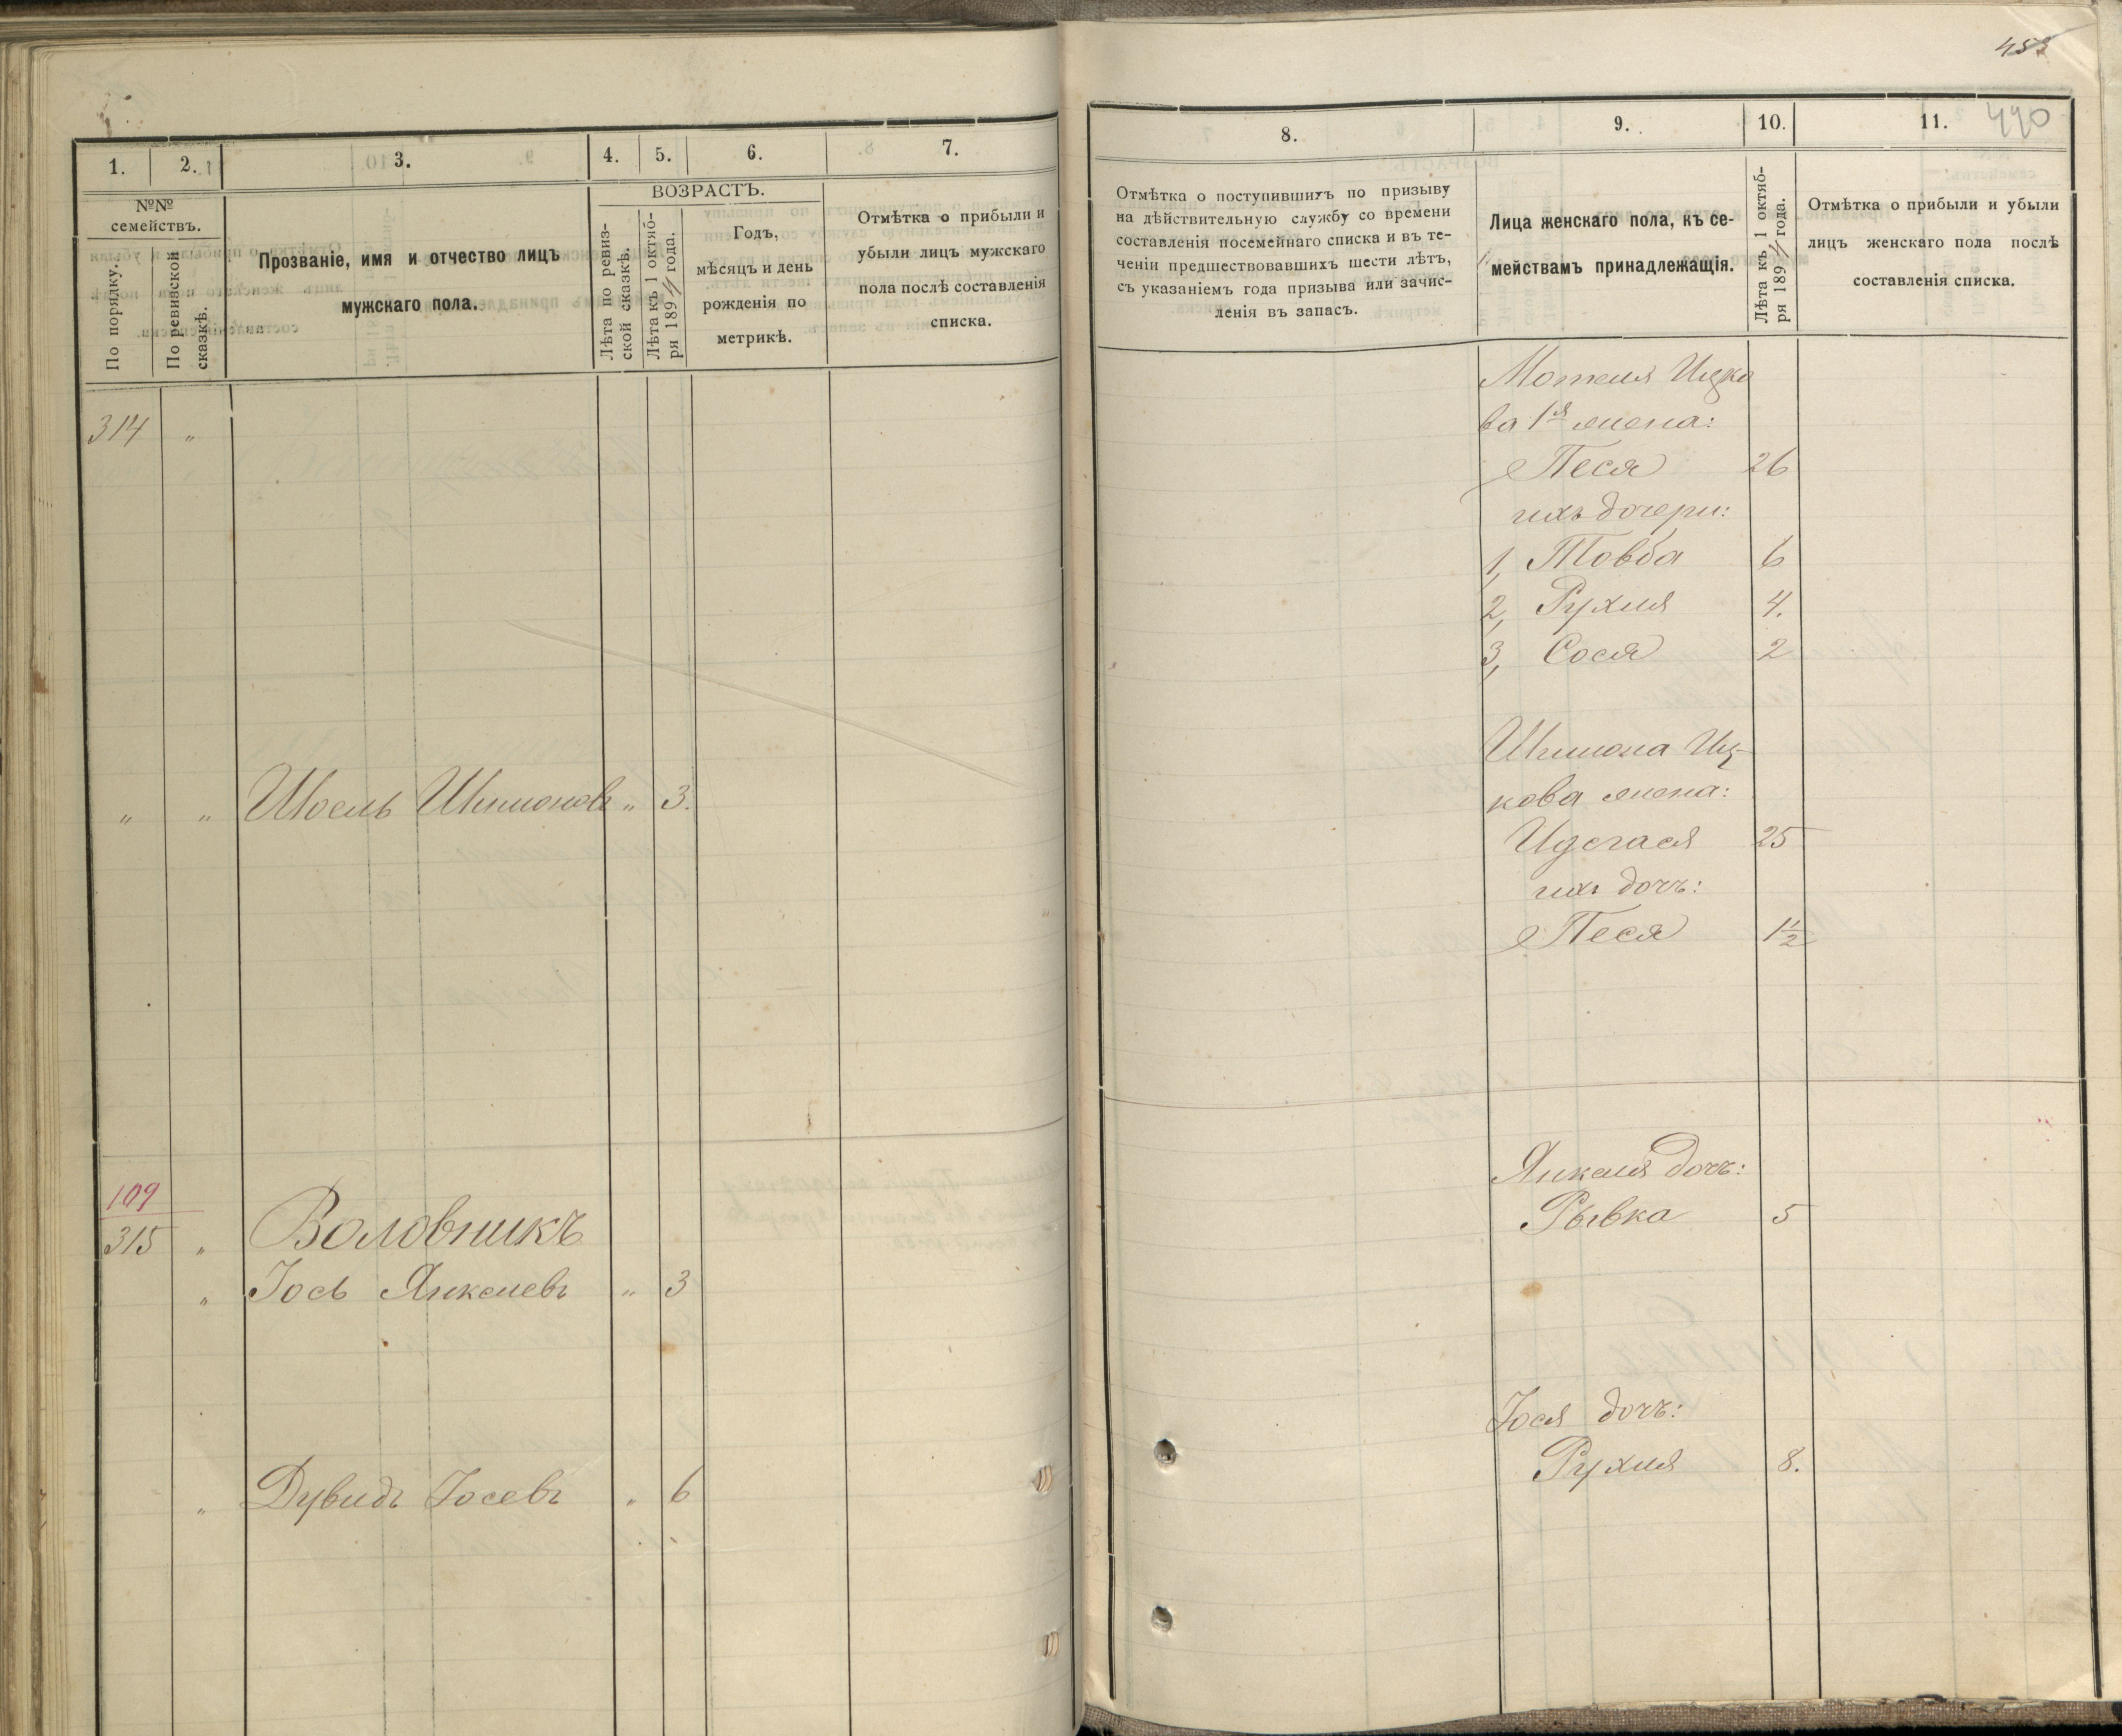 453
490
1.
2.
3.
4.
5.
6.
7.
№№
семействъ.
По порядку.
По ревизской
сказкѣ.
Прозваніе, имя и отчество лицъ
мужскаго пола.
ВОЗРАСТЪ.
Лѣта по ревиз-
ской сказкѣ.
Лѣта къ 1 октяб-
ря 1894 года.
Годъ,
мѣсяцъ и день
рожденія по
метрикѣ.
Отмѣтка о прибыли и
убыли лицъ мужскаго
пола послѣ составленія
списка.
314 "
" " Шоель Шимоновъ " 3.
109
315 " Воловникъ
" Іось Янкелевъ " 3
" Дувидъ Іосевъ " 6
8.
9.
10.
11.
Отмѣтка о поступившихъ по призыву
на дѣйствительную службу со времени
составленія посемейнаго списка и въ те-
ченіи предшествовавшихъ шести лѣтъ,
съ указаніемъ года призыва или зачис-
ленія въ запасъ.
Лица женскаго пола, къ се-
мействамъ принадлежащія.
Лѣта къ 1 октяб-
ря 1894 года.
Отмѣтка о прибыли и убыли
лицъ женскаго пола послѣ
составленія списка.
Мотеля Ицко
ва 1я жена:
Песя 26
ихъ дочери:
1, Товба 6
2, Рухля 4.
3, Сося 2
Шимона Иц-
кова жена:
25
ихъ дочь:
Песя 1½
Янкеля дочь:
Рывка 5
Іося дочь:
Рухля 8.